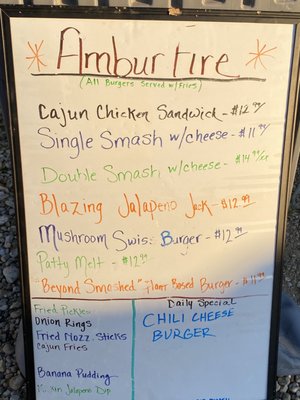 Ambur Fire
(All Burgers Served w/Fries)
Cajun Chicken Sandwich - $12.99
Single Smash w/cheese - $11.99
Double Smash w/cheese - $14.99
Blazing Jalapeno Jack - $12.99
Mushroom Swiss Burger - $12.99
Patty Melt - $12.99
"Beyond Smashed" Plant Based Burger - $11.99
Fried Pickles
Onion Rings
Fried Mozz Sticks
Cajun Fries
Banana Pudding
Jalapeno Dip
Daily Special
CHILI CHEESE
BURGER